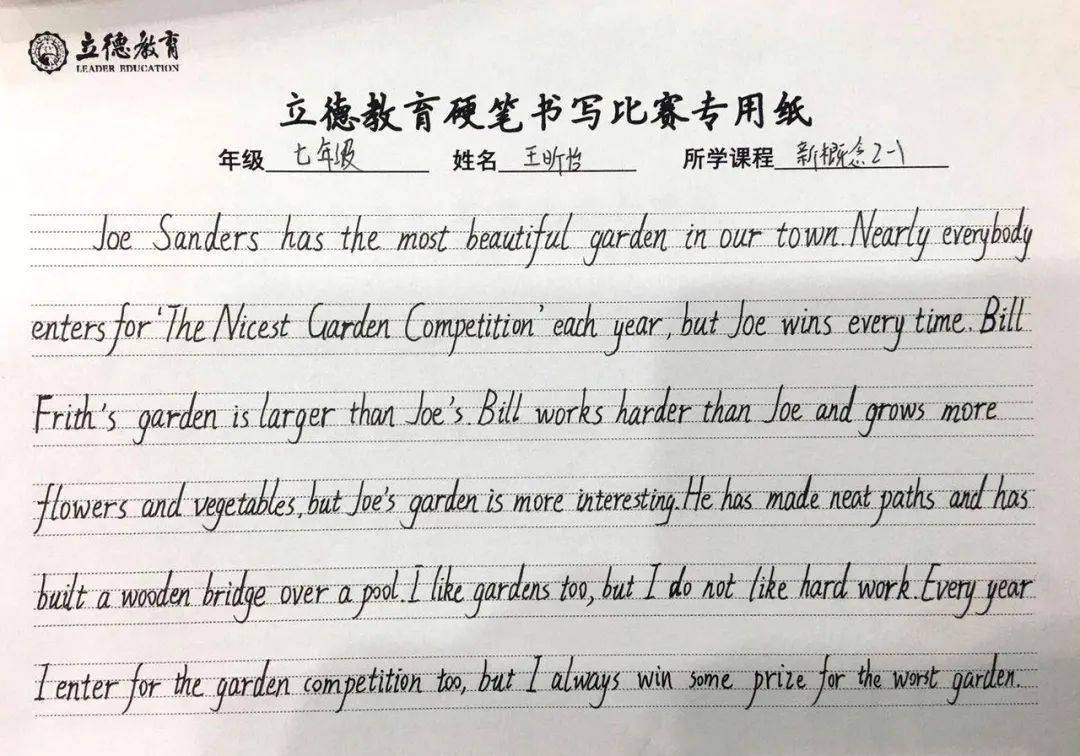 立德教育
LEADER EDUCATION
立德教育硬笔书写比赛专用纸
年级 七年级 姓名 王昕怡 所学课程 新概念2-1
Joe Sanders has the most beautiful garden in our town. Nearly everybody
enters for 'The Nicest Garden Competition' each year, but Joe wins every time. Bill
Frith's garden is larger than Joe's. Bill works harder than Joe and grows more
flowers and vegetables, but Joe's garden is more interesting. He has made neat paths and has
built a wooden bridge over a pool. I like gardens too, but I do not like hard work. Every year
I enter for the garden competition too, but I always win some prize for the worst garden.